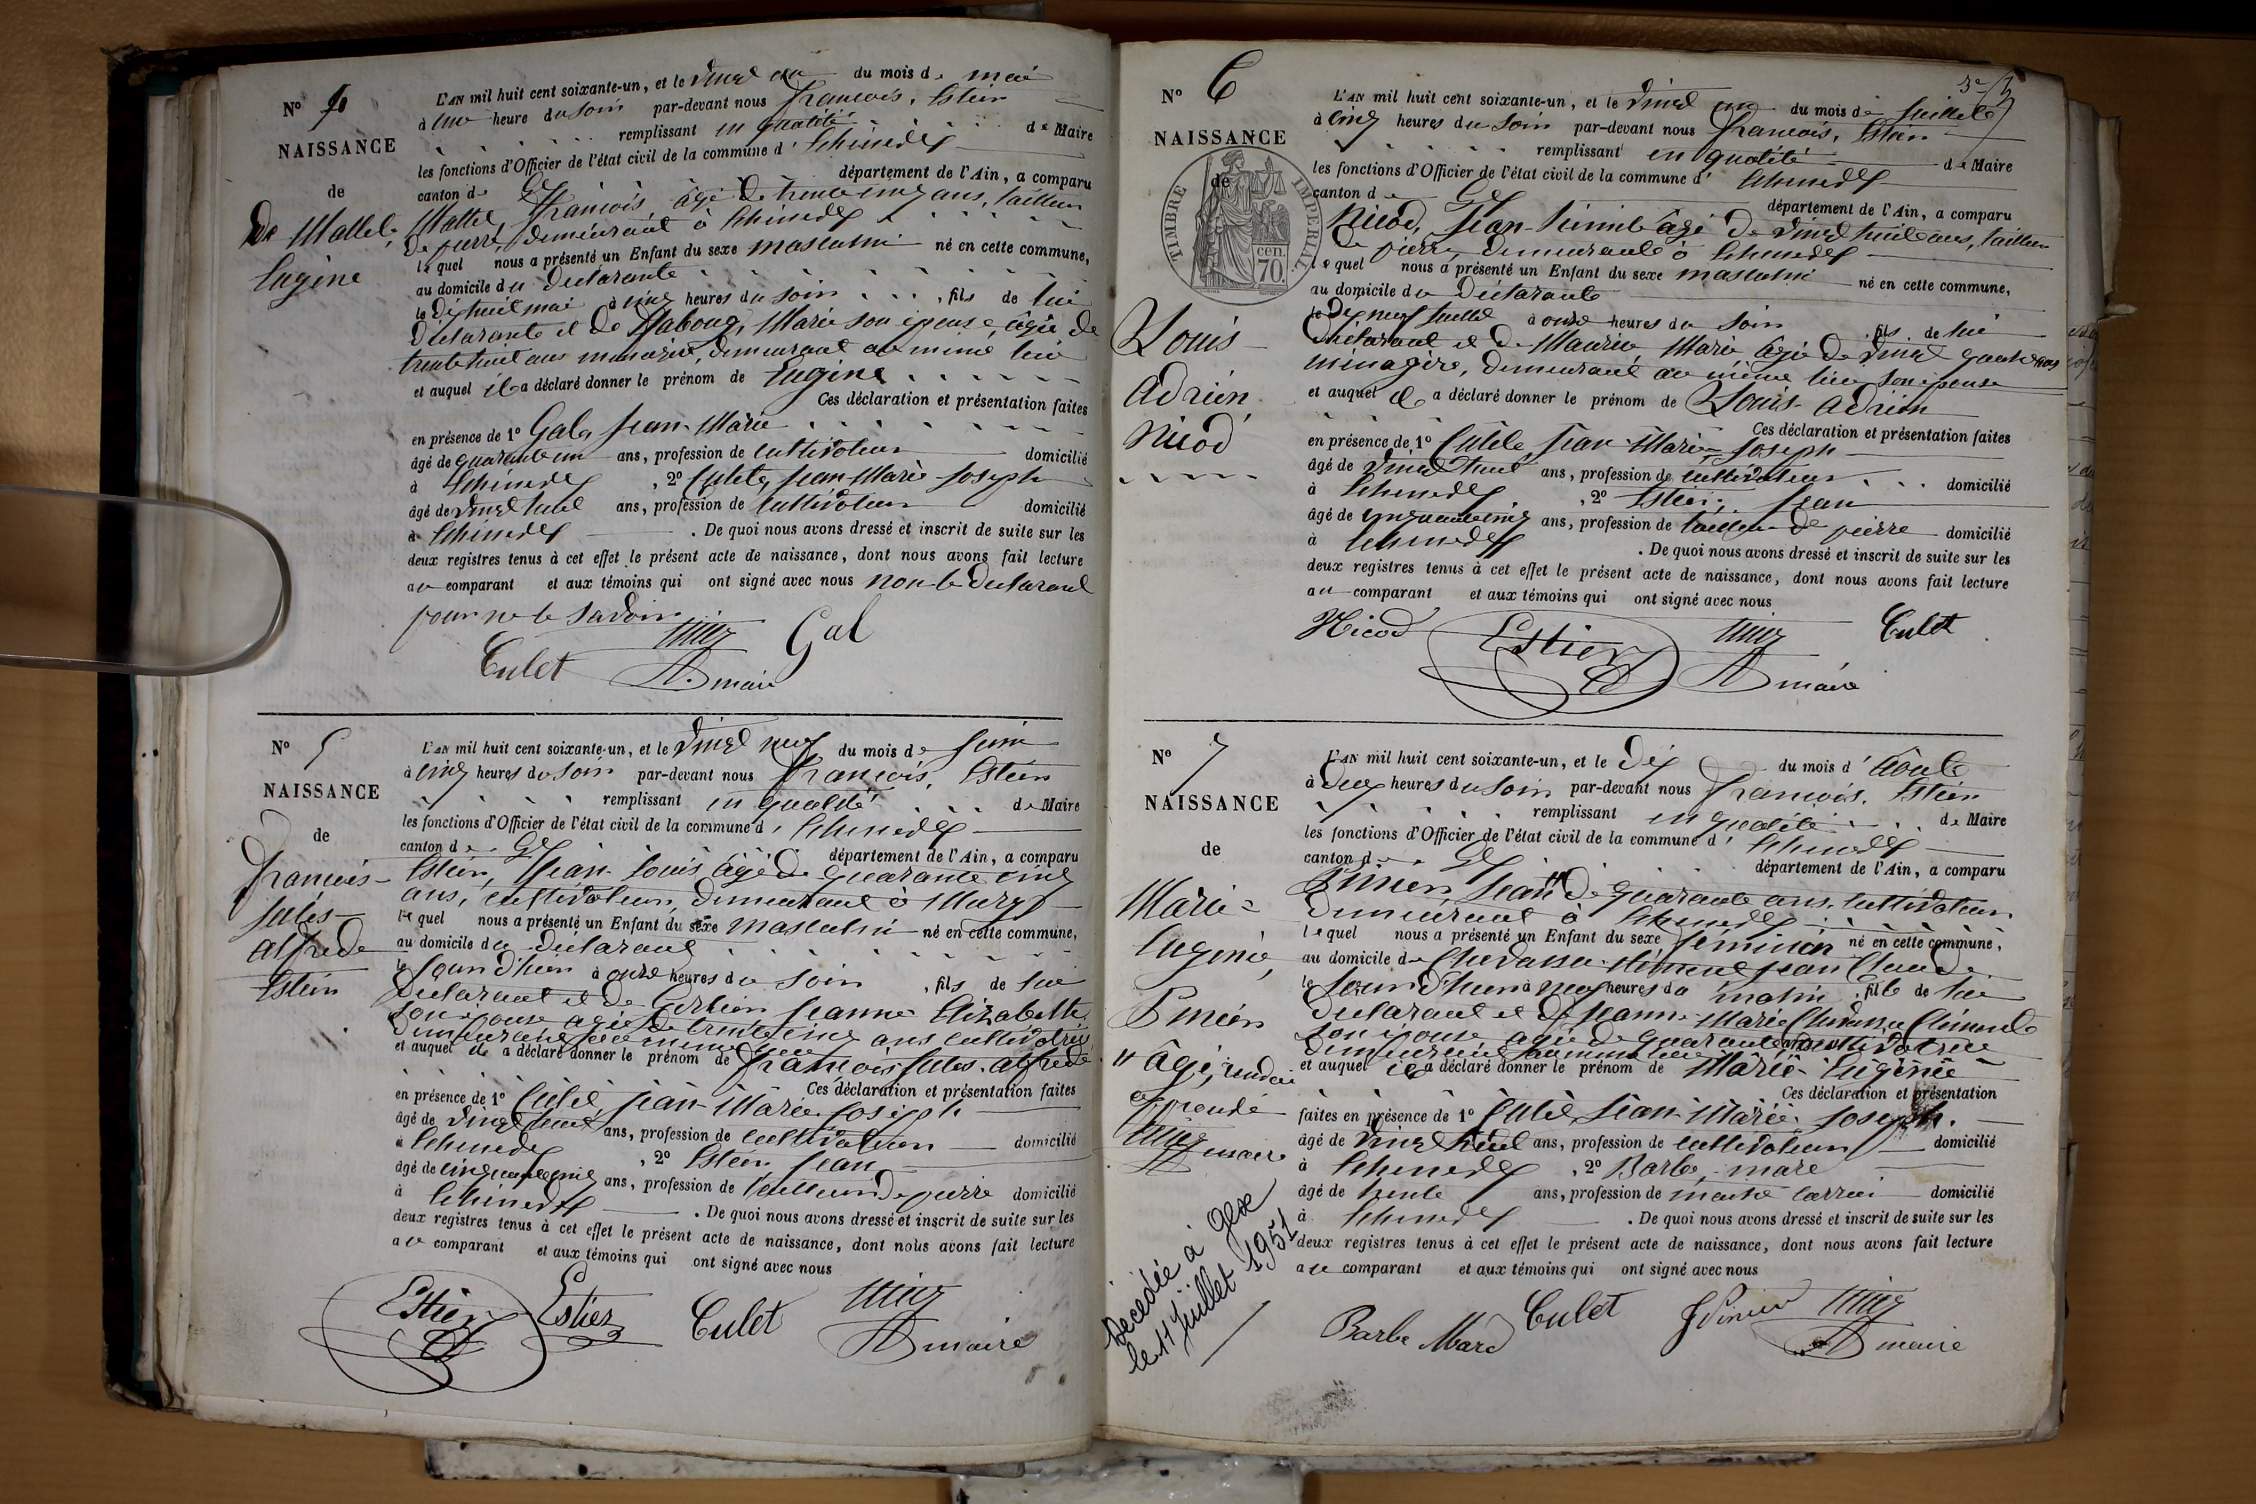 N° 4
NAISSANCE
de
Mattel
Eugène
L'AN mil huit cent soixante-un, et le vingt un du mois de mai
à une heure du soir par-devant nous François, Estier
remplissant en qualité de Maire
les fonctions d'Officier de l'état civil de la commune d'Echenevex
canton de Gex département de l'Ain, a comparu
Mattel, François âgé de trente cinq ans, tailleur
de pierre, demeurant à Echenevex
lequel nous a présenté un Enfant du sexe masculin né en cette commune,
au domicile du déclarante
le dix huit mai à cinq heures du soir, fils de lui
déclarante et de Marie son épouse, âgée de
trente huit ans ménagère, demeurant au même lieu
et auquel il a déclaré donner le prénom de Eugène
Ces déclaration et présentation faites
en présence de 1° Gal, Jean-Marie
âgé de quarante un ans, profession de cultivateur domicilié
à Echenevex, 2° Culet, Jean-Marie Joseph
âgé de vingt huit ans, profession de cultivateur domicilié
à Echenevex. De quoi nous avons dressé et inscrit de suite sur les
deux registres tenus à cet effet le présent acte de naissance, dont nous avons fait lecture
au comparant et aux témoins qui ont signé avec nous non le déclarant
pour ne le savoir
Culet Gal
maire
N° 5
NAISSANCE
de
François-
Jules-
Alfrede
Estier
L'AN mil huit cent soixante-un, et le vingt neuf du mois de juin
à cinq heures du soir par-devant nous François, Estier
remplissant en qualité de Maire
les fonctions d'Officier de l'état civil de la commune d'Echenevex
canton de Gex département de l'Ain, a comparu
Estier, Jean Louis âgé de quarante cinq
ans, cultivateur, demeurant à Mury
lequel nous a présenté un Enfant du sexe masculin né en cette commune,
au domicile du déclarant
le jour d'hier à onze heures du soir, fils de lui
déclarant et de Jeanne Elizabette
son épouse âgée de trente cinq ans cultivatrice
demeurant au même lieu
et auquel il a déclaré donner le prénom de François Jules Alfrede
Ces déclaration et présentation faites
en présence de 1° Culet, Jean-Marie Joseph
âgé de vingt huit ans, profession de cultivateur domicilié
à Echenevex, 2° Estier, Jean
âgé de cinquante cinq ans, profession de tailleur de pierre domicilié
à Echenevex. De quoi nous avons dressé et inscrit de suite sur les
deux registres tenus à cet effet le présent acte de naissance, dont nous avons fait lecture
au comparant et aux témoins qui ont signé avec nous
Estier Estier Culet
maire
N° 6
NAISSANCE
de
TIMBRE IMPERIAL
70 cen.
Louis-
Adrien
Nicod
L'AN mil huit cent soixante-un, et le vingt un du mois de Juillet
à cinq heures du soir par-devant nous François, Estier
remplissant en qualité de Maire
les fonctions d'Officier de l'état civil de la commune d'Echenevex
canton de Gex département de l'Ain, a comparu
Nicod, Jean âgé de vingt huit ans, tailleur
de pierre, demeurant à Echenevex
lequel nous a présenté un Enfant du sexe masculin né en cette commune,
au domicile du déclarante
le dix neuf juillet à onze heures du soir fils de lui
déclarant et de Marie âgée de vingt quatre ans
ménagère, demeurant au même lieu son épouse
et auquel il a déclaré donner le prénom de Louis-Adrien
Ces déclaration et présentation faites
en présence de 1° Culet, Jean-Marie, Joseph
âgé de vingt huit ans, profession de cultivateur domicilié
à Echenevex, 2° Estier, Jean
âgé de cinquante cinq ans, profession de tailleur de pierre domicilié
à Echenevex. De quoi nous avons dressé et inscrit de suite sur les
deux registres tenus à cet effet le présent acte de naissance, dont nous avons fait lecture
au comparant et aux témoins qui ont signé avec nous
Nicod Estier Culet
maire
N° 7
NAISSANCE
de
Marie-
Eugénie
" âgé,
approuvé
maire
Décédée à Gex
le 11 Juillet 1951
L'AN mil huit cent soixante-un, et le dix du mois d'Août
à deux heures du soir par-devant nous François, Estier
remplissant en qualité de Maire
les fonctions d'Officier de l'état civil de la commune d'Echenevex
canton de Gex département de l'Ain, a comparu
Jean " de quarante ans, cultivateur
demeurant à Echenevex
lequel nous a présenté un Enfant du sexe féminin né en cette commune,
au domicile de Clément Jean Claude
le jour d'hier à neuf heures du matin, fille de lui
déclarant et de Jeanne-Marie
son épouse, âgée de quarante ans cultivatrice
demeurant au même lieu
et auquel il a déclaré donner le prénom de Marie-Eugénie
Ces déclaration et présentation
faites en présence de 1° Culet Jean-Marie, Joseph
âgé de vingt huit ans, profession de cultivateur domicilié
à Echenevex, 2° Barbe, marc
âgé de trente ans, profession de domicilié
à Echenevex. De quoi nous avons dressé et inscrit de suite sur les
deux registres tenus à cet effet le présent acte de naissance, dont nous avons fait lecture
au comparant et aux témoins qui ont signé avec nous
Barbe Marc Culet
maire